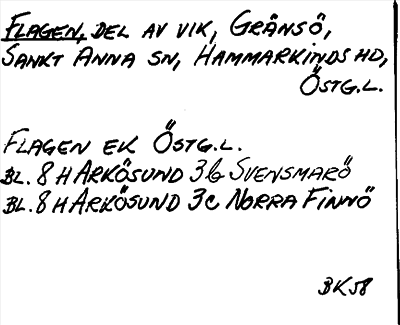 FLAGEN, DEL AV VIK, GRÄNSÖ,
SANKT ANNA SN, HAMMARKINDS HD,
ÖSTG.L.
FLAGEN EK ÖSTG.L.
BL. 8 H ARKÖSUND 3b SVENSMARÖ
BL. 8 H ARKÖSUND 3c NORRA FINNÖ
BK58